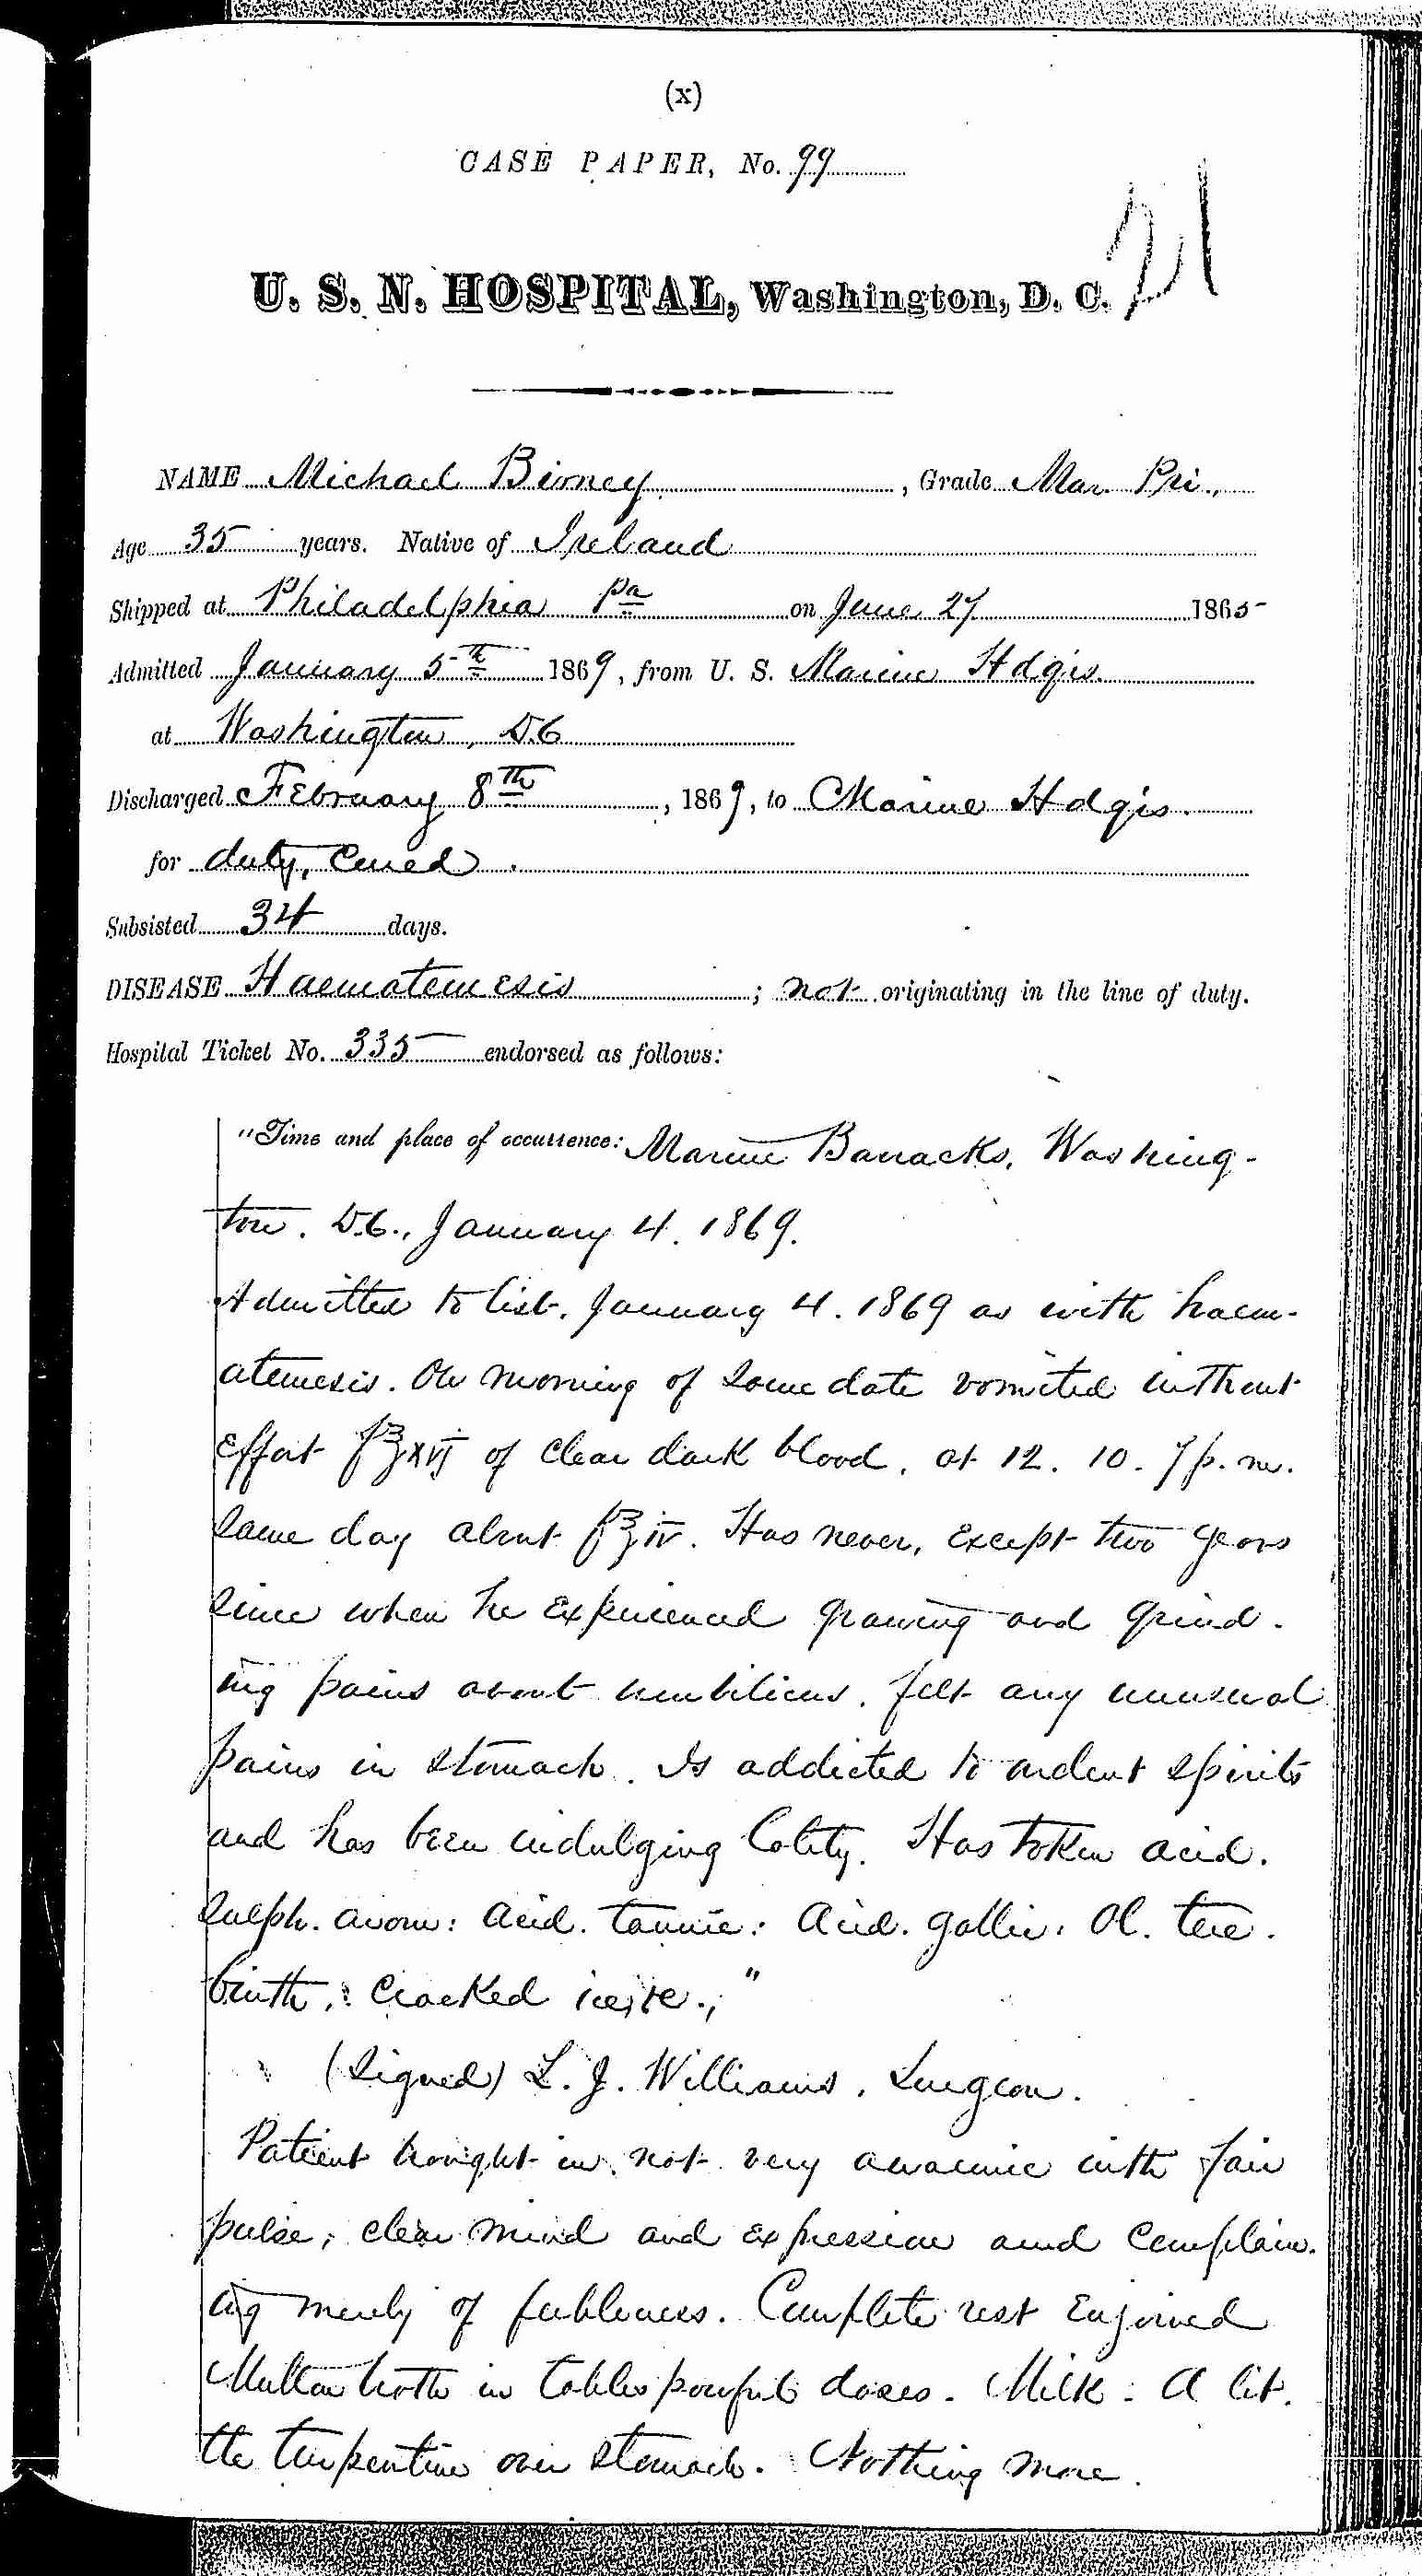 (x)
CASE PAPER, No. 99
21
U. S. N. HOSPITAL, Washington, D. C.
NAME Michael Birney, Grade Mar. Pri.,
Age 35 years. Native of Ireland
Shipped at Philadelphia Pa on June 27 1865
Admitted January 5th 1869, from U. S. Marine Hdqrs.
at Washington, D.C
Discharged February 8th, 1869, to Marine Hdqrs.
for duty, Cured.
Subsisted 34 days.
DISEASE Haematemesis; not originating in the line of duty.
Hospital Ticket No. 335 endorsed as follows:
"Time and place of occurrence: Marine Barracks, Washing-
ton. D.C., January 4. 1869.
Admitted to list. January 4. 1869 as with haem-
atemesis. On morning of same date vomited without
effort f℥xvj of clear dark blood. at 12. 10. 7 p. m.
same day about f℥iv. Has never, except two years
since when he experienced gnawing and grind-
ing pains about umbilicus. felt any unusual
pains in stomach. Is addicted to ardent spirits
and has been indulging lately. Has taken acid.
sulph. arom: acid. tannic: acid. gallic: Ol. tere-
binth.: cracked ice,"
(Signed) L. J. Williams, Surgeon.
Patient brought in not very anaemic with fair
pulse, clear mind and expression and complain-
ing merely of feebleness. Complete rest enjoined
Mutton broth in tablespoonful doses. Milk. A lit-
tle turpentine over stomach. Nothing more.